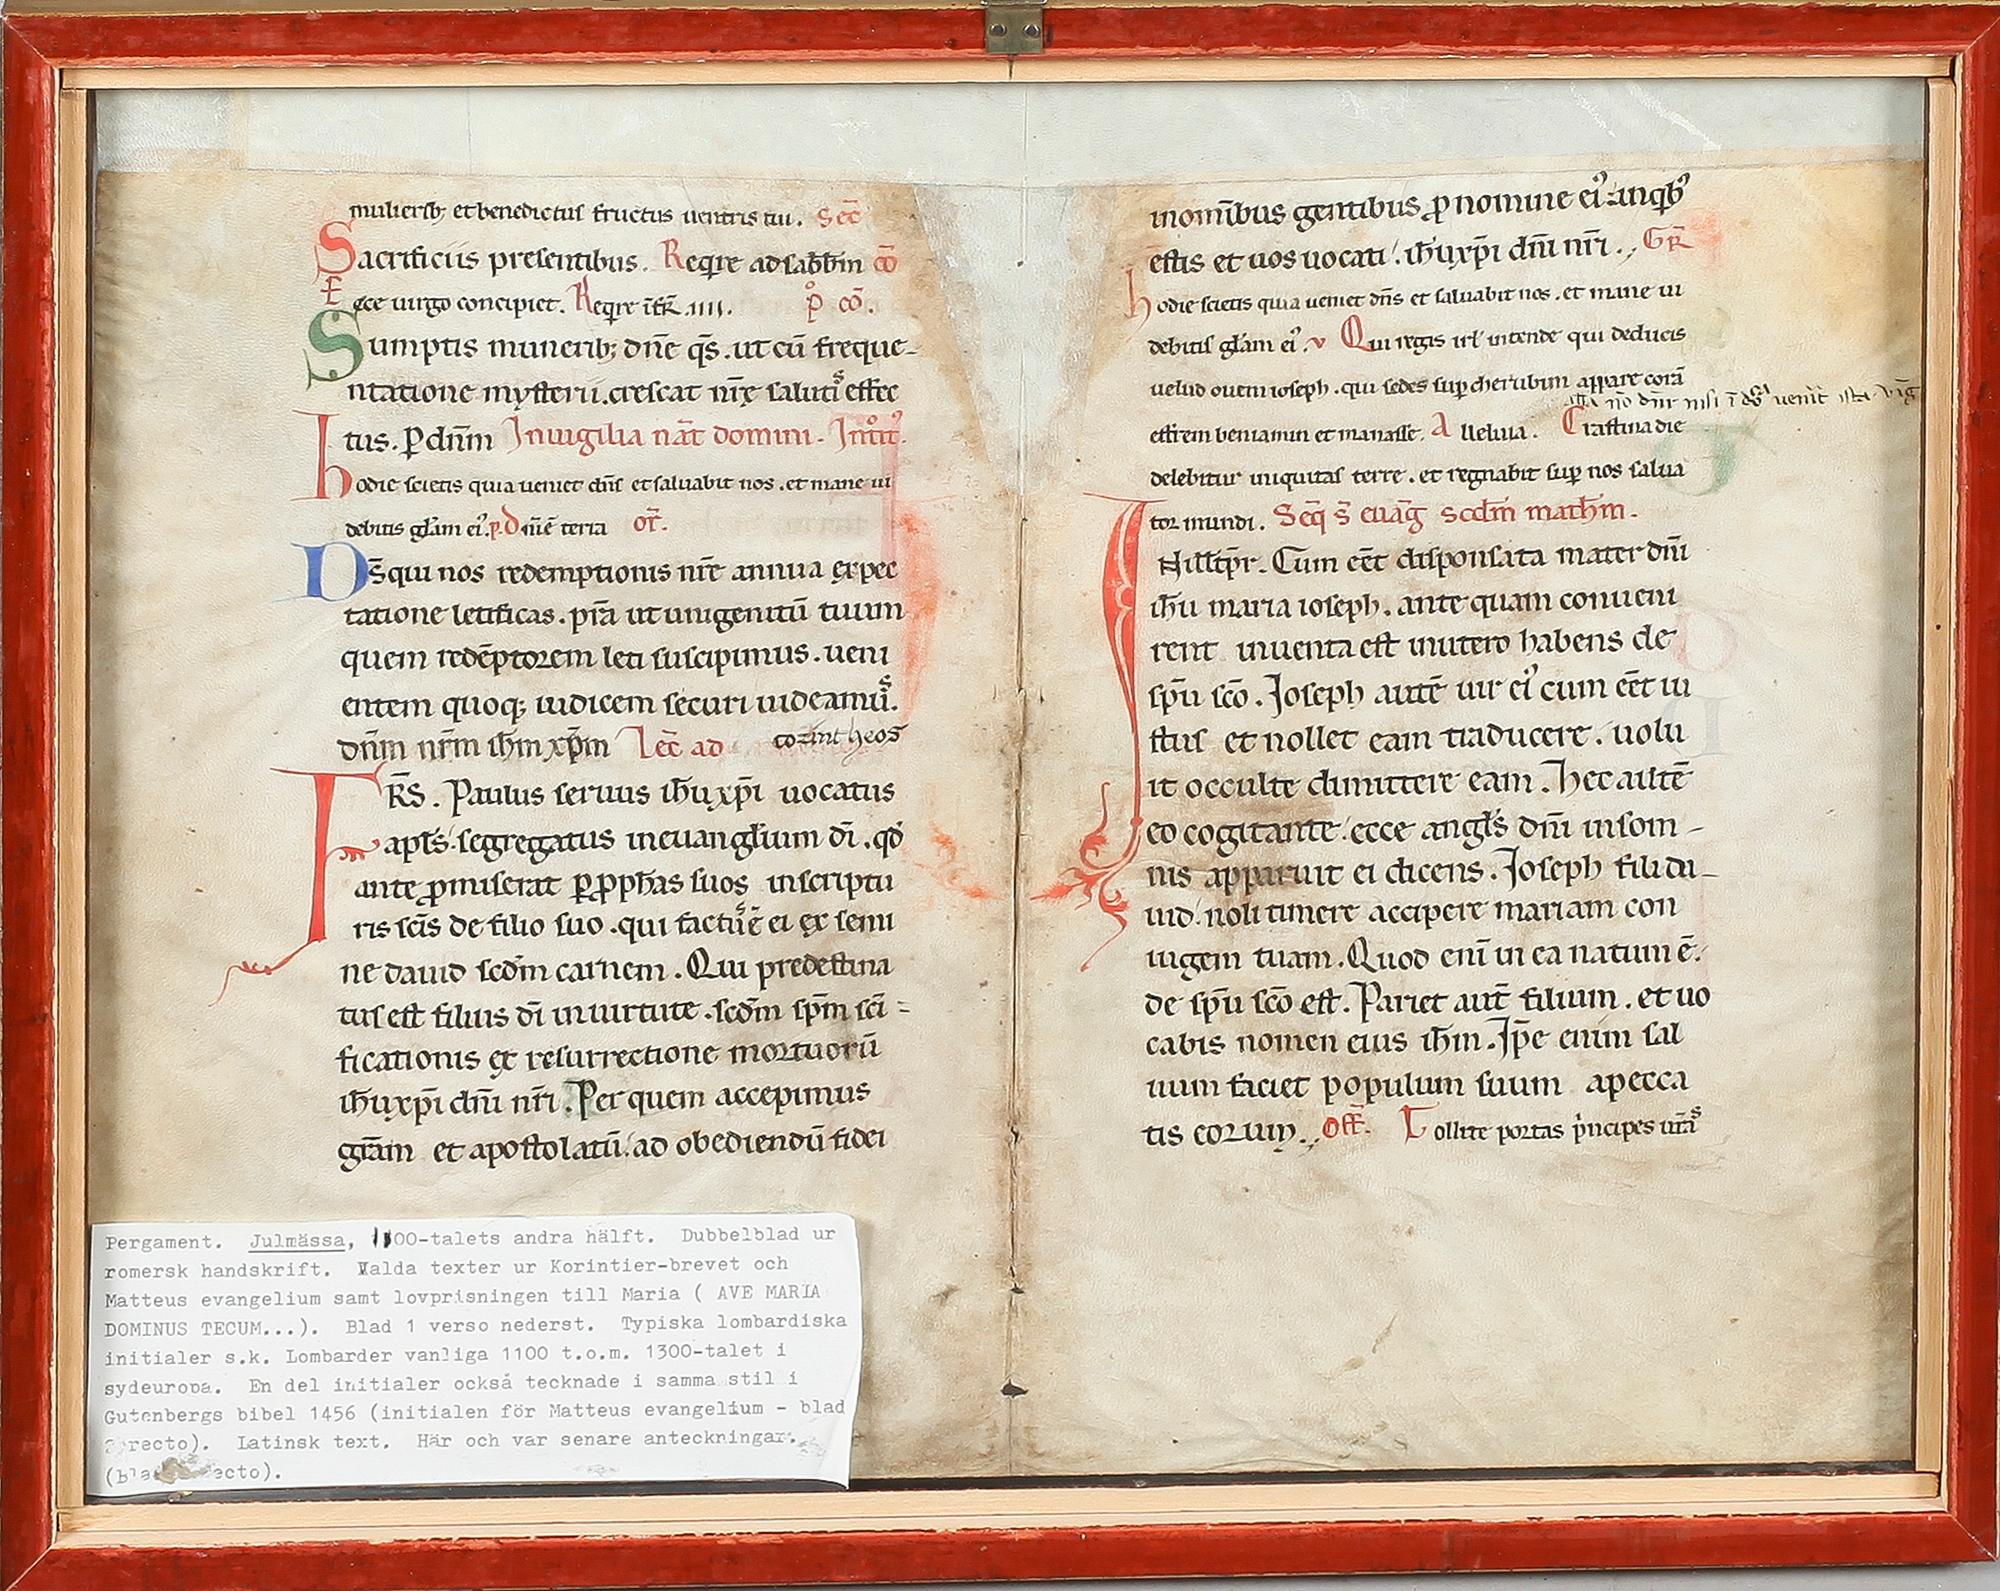 mulierib; et benedictus fructus uentris tui. Sec̄
Sacrificiis presentibus. Reqͥre ad sab̄bm cō
Ecce uirgo concipiet. Reqͥre ī fr̄. iiii. p̊ cō.
Sumptis munerib; dn̄e qs̄. ut cū freque-
ntatione mysterii. crescat nr̄e salutis effec
tus. ꝑ dn̄m In uigilia nat̄ domini. Introit̄.
hodie scietis quia ueniet dn̄s et saluabit nos. et mane ui
debitis glām ei᾿. p. Dn̄i ē terra or̄.
Ds̄ qui nos redemptionis nr̄e annua expec
tatione letificas. pr̄a ut unigenitū tuum
quem redēptorem leti suscipimus. ueni
entem quoq; iudicem securi uideamus.
dn̄m nr̄m ih̄m xp̄m Lec̄ ad corintheos
FR̄S. Paulus seruus ih̄u xp̄i uocatus
apls̄. segregatus in euangl̄ium dī. qd̄
ante ꝓmiserat ꝑ ꝓph̄as suos in scriptu
ris scīs de filio suo. qui factus ē ei ex semi
ne dauid scd̄m carnem. Qui predestina
tus est filius dī in uirtute. scd̄m sp̄m scī=
ficationis ex resurrectione mortuorū
ih̄u xp̄i dn̄i nr̄i. Per quem accepimus
gr̄am et apostolatū. ad obediendū fidei
in omib̄us gentibus ꝓ nomine ei᾿. in qb᾿
estis et uos uocati. ih̄u xp̄i dn̄i nr̄i. GR̄
hodie scietis quia ueniet dn̄s et saluabit nos. et mane ui
debitis glām ei᾿. v Qui regis isrl̄ intende qui deducis
uelud ouem ioseph. qui sedes suꝑ cherubim appare corā
effrem beniamin et manasse. Alleluia. Crastina die
delebitur iniquitas terre. et regnabit suꝑ nos salua
tor mundi. Seq̄ s̄ euāḡ scd̄m math̄m.
IN ill̄ tp̄r. Cum eēt disponsata mater dn̄i
ih̄u maria ioseph. ante quam conueni
rent inuenta est in utero habens de
sp̄u scō. Ioseph autē uir ei᾿ cum eēt iu
stus et nollet eam traducere. uolu
it occulte dimittere eam. Hec autē
eo cogitante. ecce angl̄s dn̄i in som-
nis apparuit ei dicens. Ioseph fili da-
uid. noli timere accipere mariam con
iugem tuam. Quod enī in ea natum ē.
de sp̄u scō est. Pariet aut̄ filium. et uo
cabis nomen eius ih̄m. Ip̄e enim sal
uum faciet populum suum a pecca
tis eorum. Off̄. Tollite portas p̍ncipes ur̄as
Pergament. Julmässa, 1100-talets andra hälft. Dubbelblad ur
romersk handskrift. Valda texter ur Korintier-brevet och
Matteus evangelium samt lovprisningen till Maria ( AVE MARIA
DOMINUS TECUM...). Blad 1 verso nederst. Typiska lombardiska
initialer s.k. Lombarder vanliga 1100 t.o.m. 1300-talet i
sydeuropa. En del initialer också tecknade i samma stil i
Gutenbergs bibel 1456 (initialen för Matteus evangelium - blad
2 recto). Latinsk text. Här och var senare anteckningar.